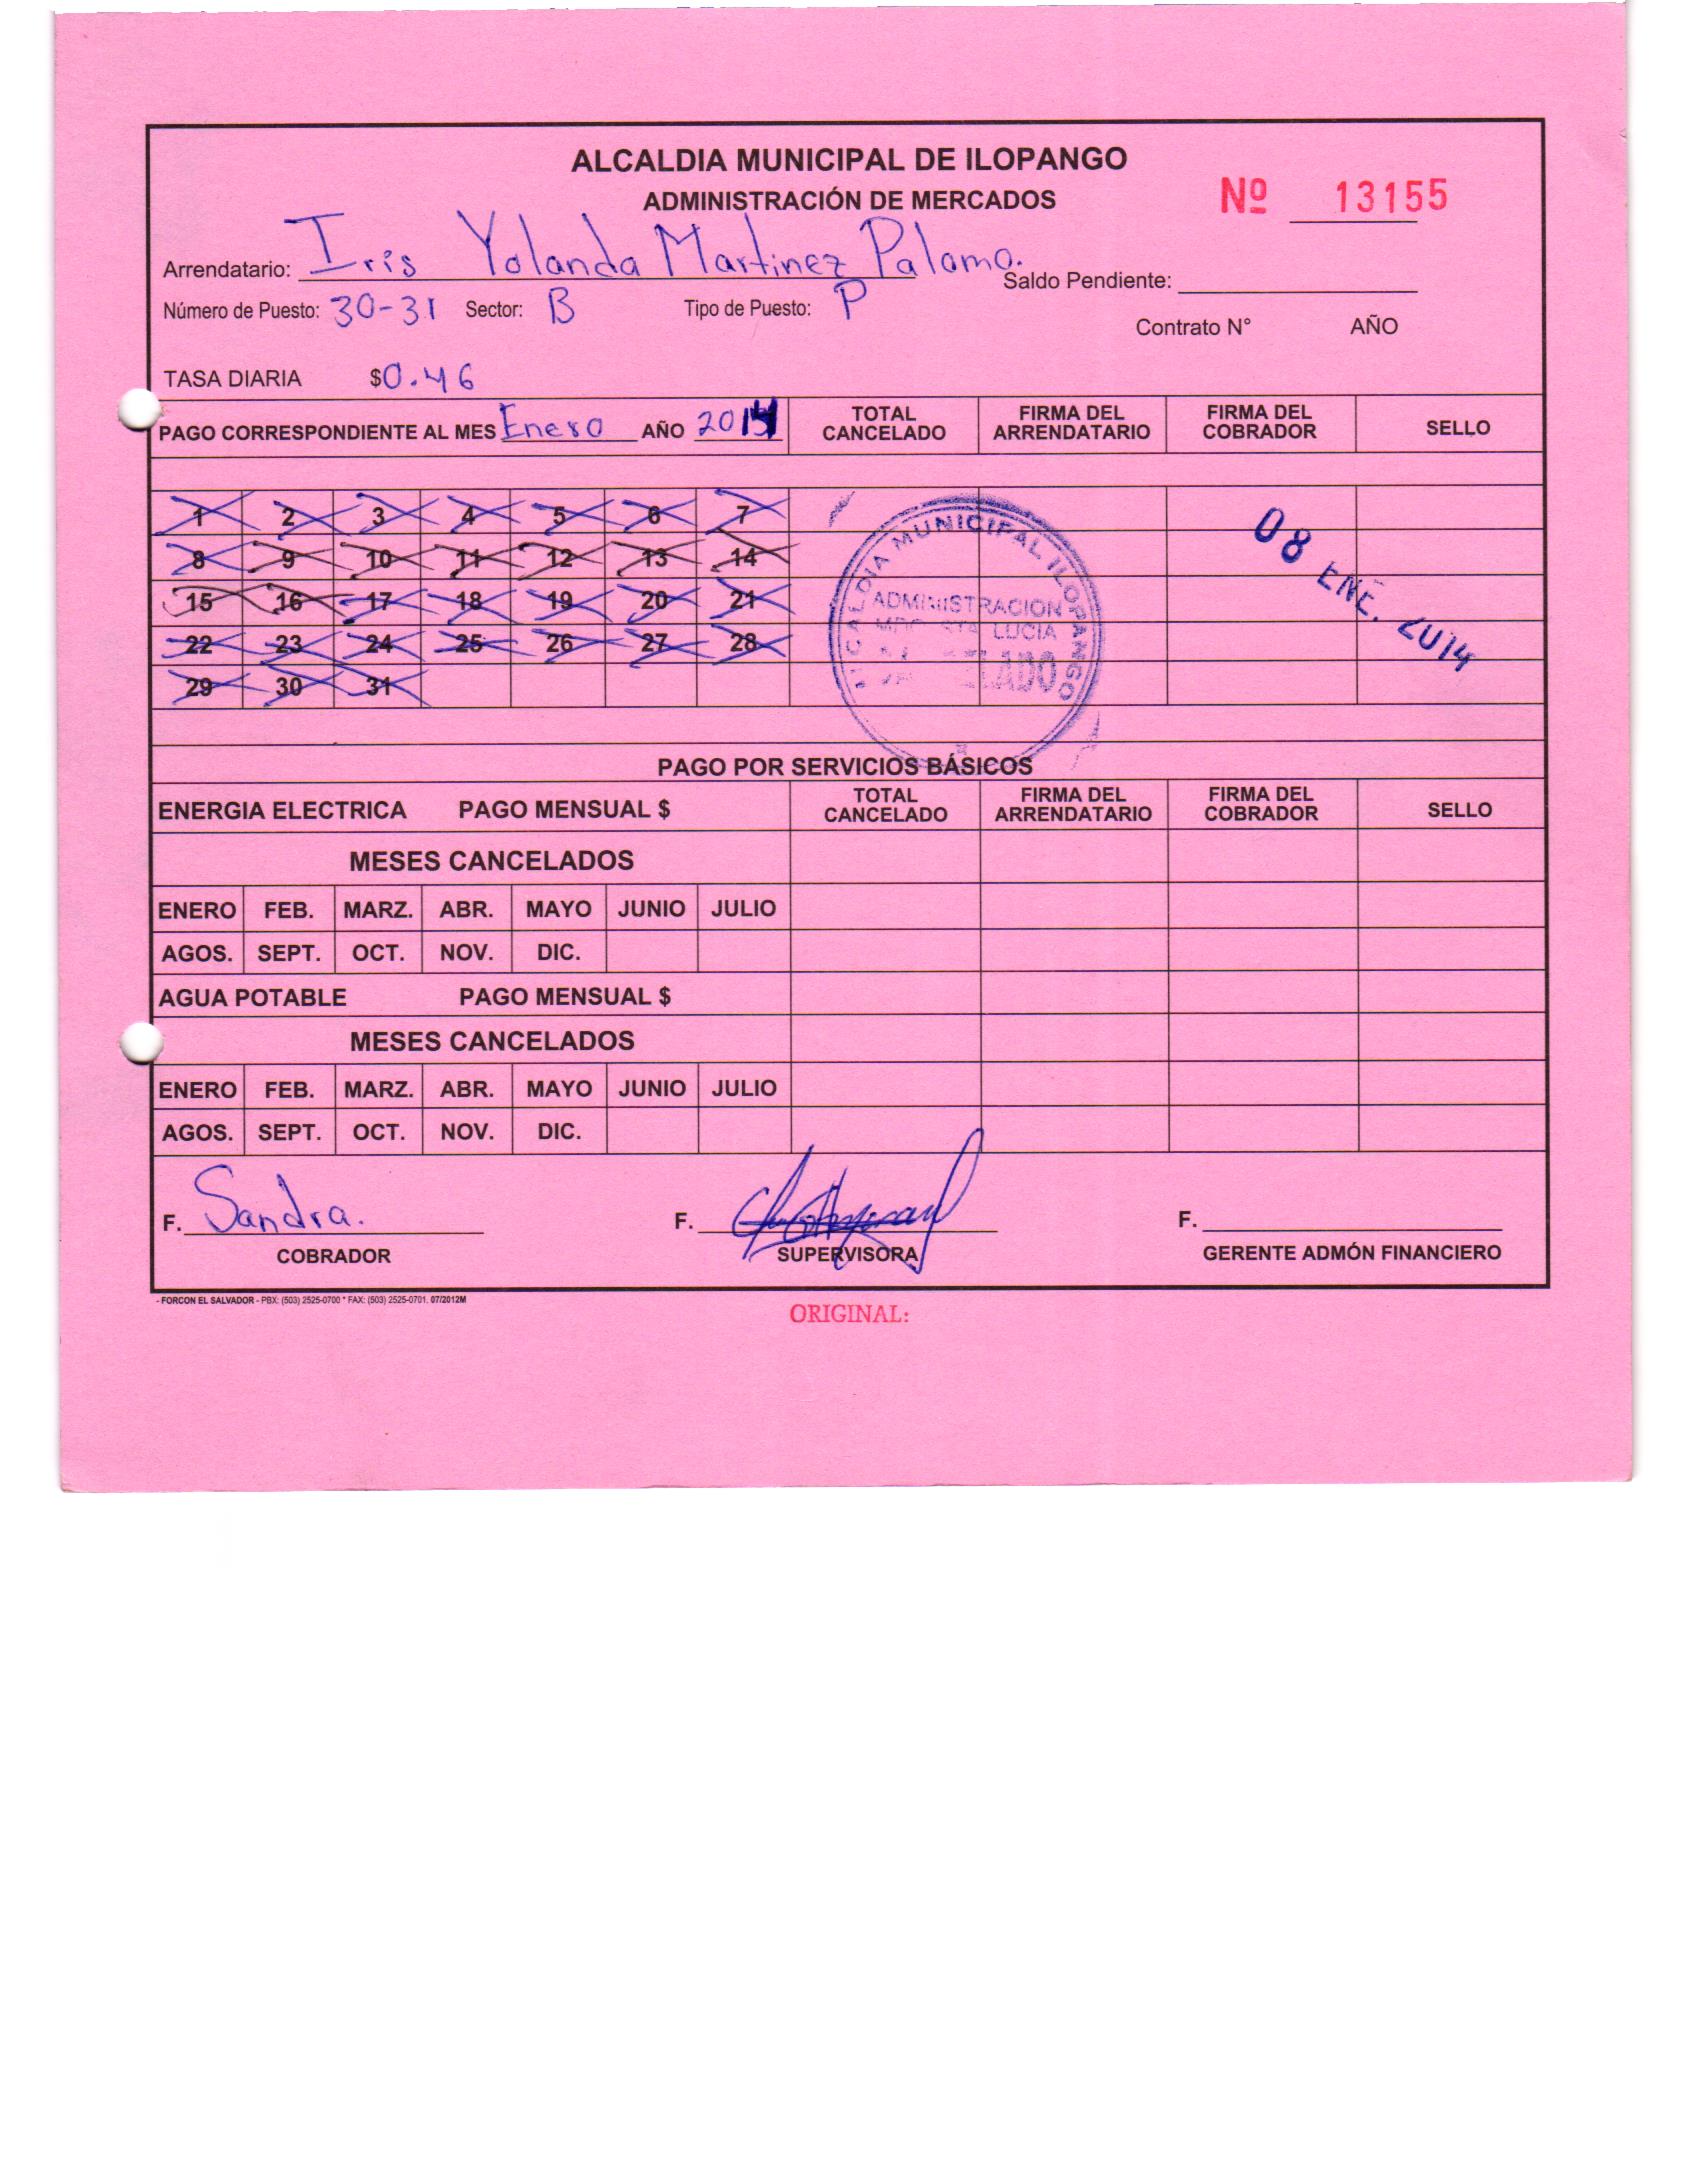 ALCALDIA MUNICIPAL DE ILOPANGO
ADMINISTRACIÓN DE MERCADOS
Nº 13155
Arrendatario: Iris Yolanda Martinez Palomo.
Saldo Pendiente:
Número de Puesto: 30-31 Sector: B Tipo de Puesto: P
Contrato N° AÑO
TASA DIARIA $0.46
PAGO CORRESPONDIENTE AL MES Enero AÑO 2014 TOTAL CANCELADO FIRMA DEL ARRENDATARIO FIRMA DEL COBRADOR SELLO
1 2 3 4 5 6 7
8 9 10 11 12 13 14
15 16 17 18 19 20 21
22 23 24 25 26 27 28
29 30 31
ALCALDIA MUNICIPAL ILOPANGO
ADMINISTRACION
STA LUCIA
08 ENE. 2014
PAGO POR SERVICIOS BÁSICOS
ENERGIA ELECTRICA PAGO MENSUAL $ TOTAL CANCELADO FIRMA DEL ARRENDATARIO FIRMA DEL COBRADOR SELLO
MESES CANCELADOS
ENERO FEB. MARZ. ABR. MAYO JUNIO JULIO
AGOS. SEPT. OCT. NOV. DIC.
AGUA POTABLE PAGO MENSUAL $
MESES CANCELADOS
ENERO FEB. MARZ. ABR. MAYO JUNIO JULIO
AGOS. SEPT. OCT. NOV. DIC.
F. Sandra. F. F.
COBRADOR SUPERVISORA GERENTE ADMÓN FINANCIERO
- FORCON EL SALVADOR - PBX: (503) 2525-0700 * FAX: (503) 2525-0701. 07/2012M
ORIGINAL: